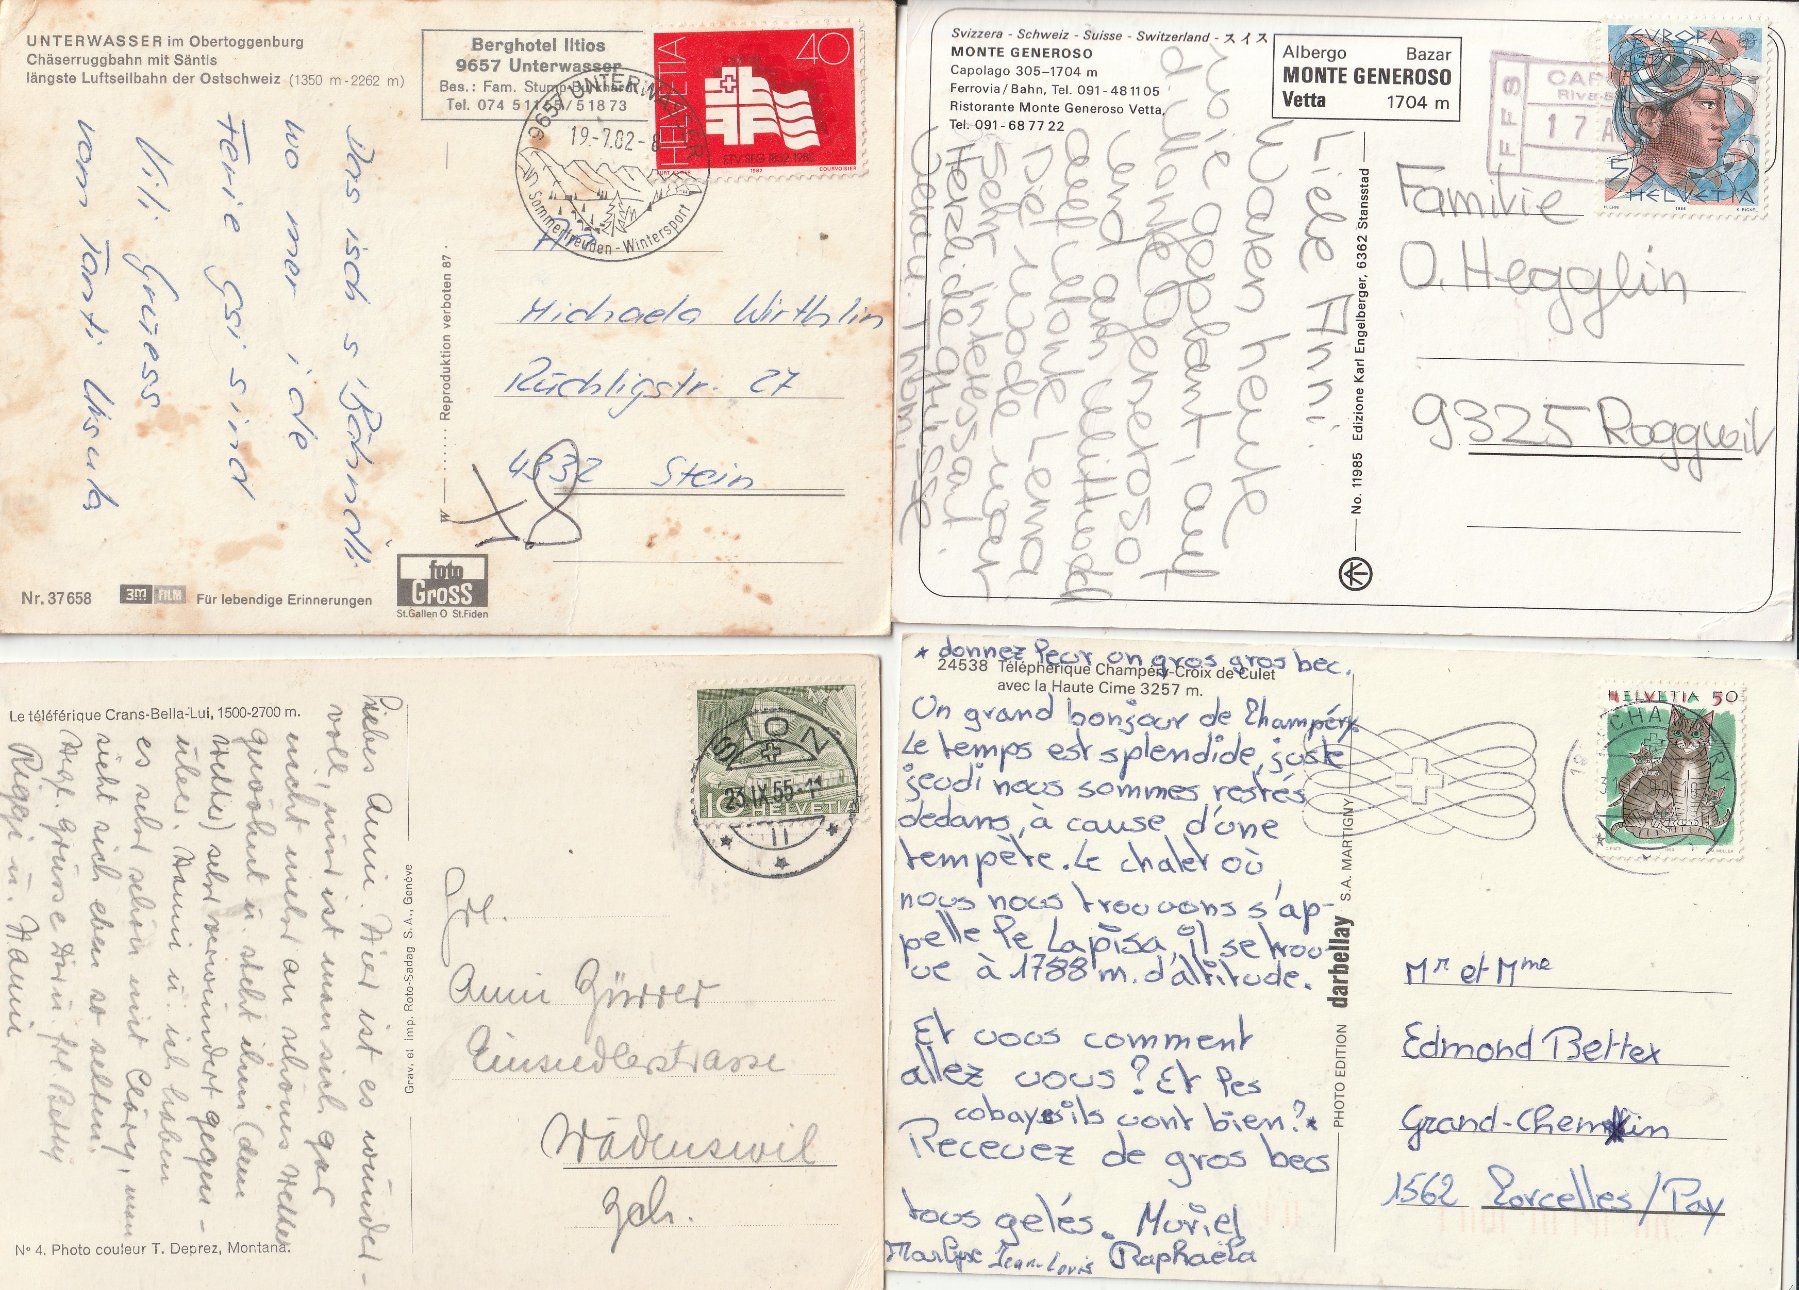 UNTERWASSER im Obertoggenburg
Chäserruggbahn mit Säntis
längste Luftseilbahn der Ostschweiz (1350 m - 2262 m)
Berghotel Iltios
9657 Unterwasser
Bes.: Fam. Stump-Burkhart
Tel. 074 51155/51873
HELVETIA
40
9657 UNTERWASSER
19.-7.82-8
Sommerfreuden - Wintersport
Das isch s'Bähndli
wo mer i de
Ferie gsi sind
Vili Grüess
vom Tanti Ursula
Reproduktion verboten 87
Michaela Wirthlin
Rüchligstr. 27
4332 Stein
Nr. 37658
3M FILM
Für lebendige Erinnerungen
foto
Gross
St.Gallen O St.Fiden
Svizzera - Schweiz - Suisse - Switzerland - スイス
MONTE GENEROSO
Capolago 305–1704 m
Ferrovia/Bahn, Tel. 091-481105
Ristorante Monte Generoso Vetta,
Tel. 091-687722
Albergo Bazar
MONTE GENEROSO
Vetta 1704 m
FFS
17 A
EUROPA
HELVETIA
Liebe Anni!
Waren heute
wie geplant, auf
d. Monte Generoso
und am
auf Monte Lema
Die
sehr interessant.
Herzliche Grüsse
No. 11985 Edizione Karl Engelberger, 6362 Stansstad
Familie
O. Hegglin
9325 Roggwil
Le téléférique Crans-Bella-Lui, 1500-2700 m.
SION
23.IX.55-11
10 HELVETIA
Liebes Anni. Hier ist es wunder-
voll, nur ist man sich gar
nicht mehr an schönes Wetter
gewöhnt u. steht ihm (dem
Wetter) sehr verwundert gegen-
über. Hanni u. ich haben
es sehr schön mit Cläry, man
sieht sich eben so selten.
Herzl. Grüsse
u. Hanni
Grav. et Imp. Roto-Sadag S.A., Genève
Frl.
Anni Zürrer
Einsiedlerstrasse
Wädenswil
Zch.
N° 4. Photo couleur T. Deprez, Montana.
* donnez leur un gros gros bec.
24538 Téléphérique Champéry-Croix de Culet
avec la Haute Cime 3257 m.
Un grand bonjour de Champéry.
Le temps est splendide, juste
jeudi nous sommes restés
dedans, à cause d'une
tempète. Le chalet où
nous nous trouvons s'ap-
pelle le Lapisa, il se trou
ve à 1788 m. d'altitude.
Et vous comment
allez vous? Et les
cobayes ils vont bien?*
Recevez de gros becs
tous gelés. Muriel
Marlyse Jean-Louis Raphaëla
PHOTO EDITION darbellay S.A. MARTIGNY
HELVETIA 50
CHAMPÉRY
Mr et Mme
Edmond Bettex
Grand-Chemin
1562 Corcelles/Pay